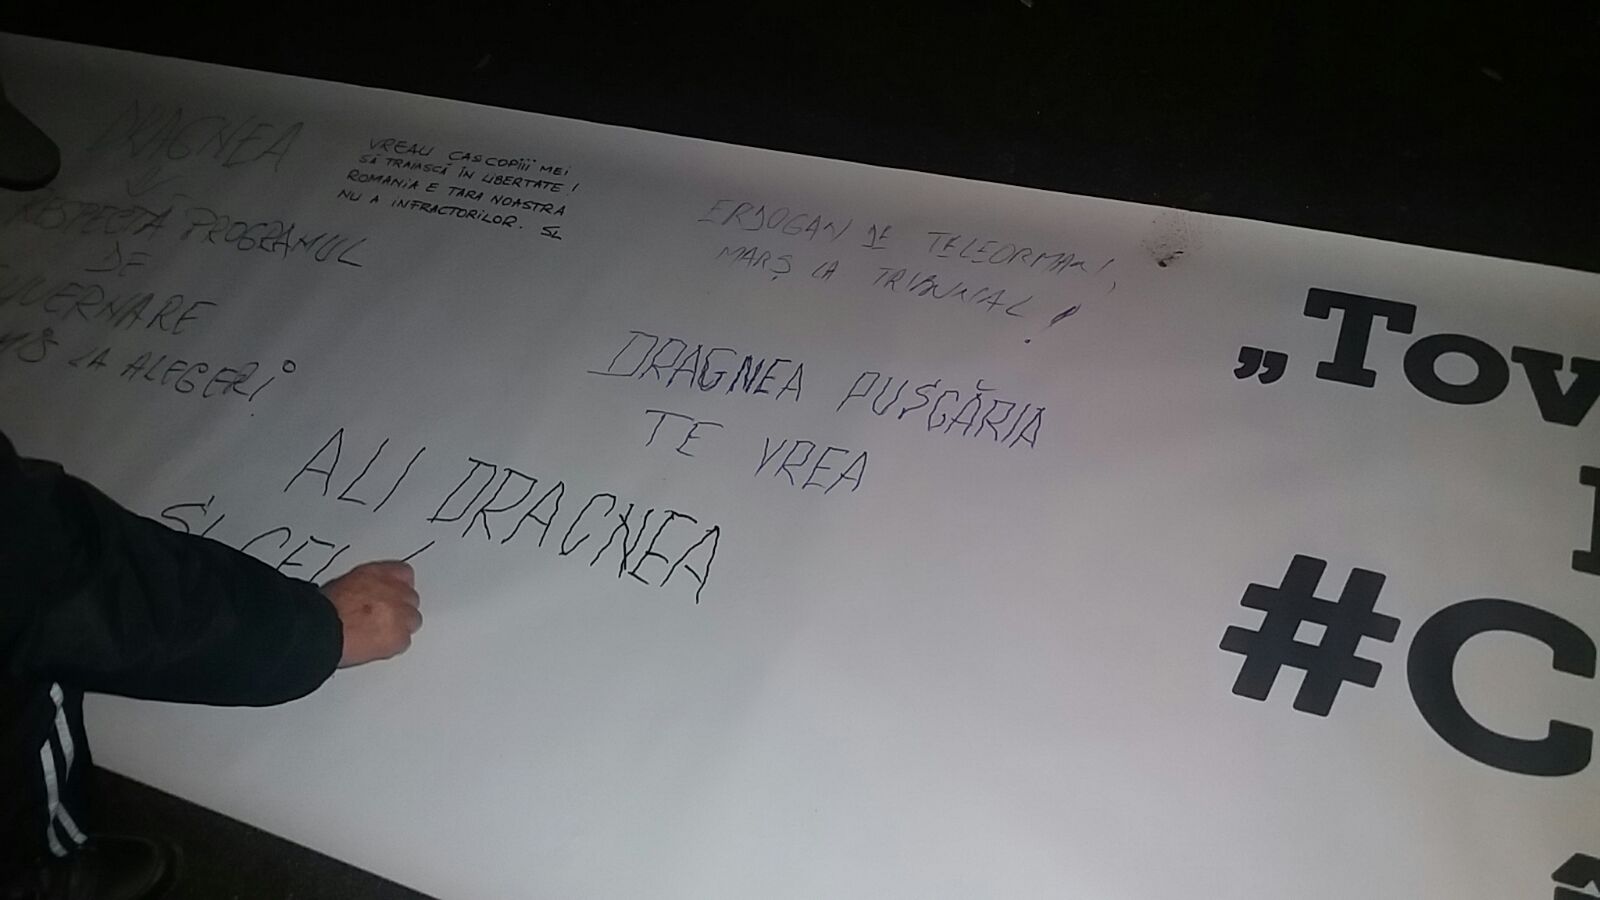 DRAGNEA
RESPECTĂ PROGRAMUL
DE
GUVERNARE
LA ALEGERI
VREAU CA COPIII MEI
SĂ TRAIASCĂ ÎN LIBERTATE!
ROMANIA E TARA NOASTRA
NU A INFRACTORILOR. SL
ERDOGAN DE TELEORMAN!
MARȘ LA TRIBUNAL!
DRAGNEA PUȘCĂRIA
TE VREA
ALI DRAGNEA
ȘI CEI
„Tov
#C